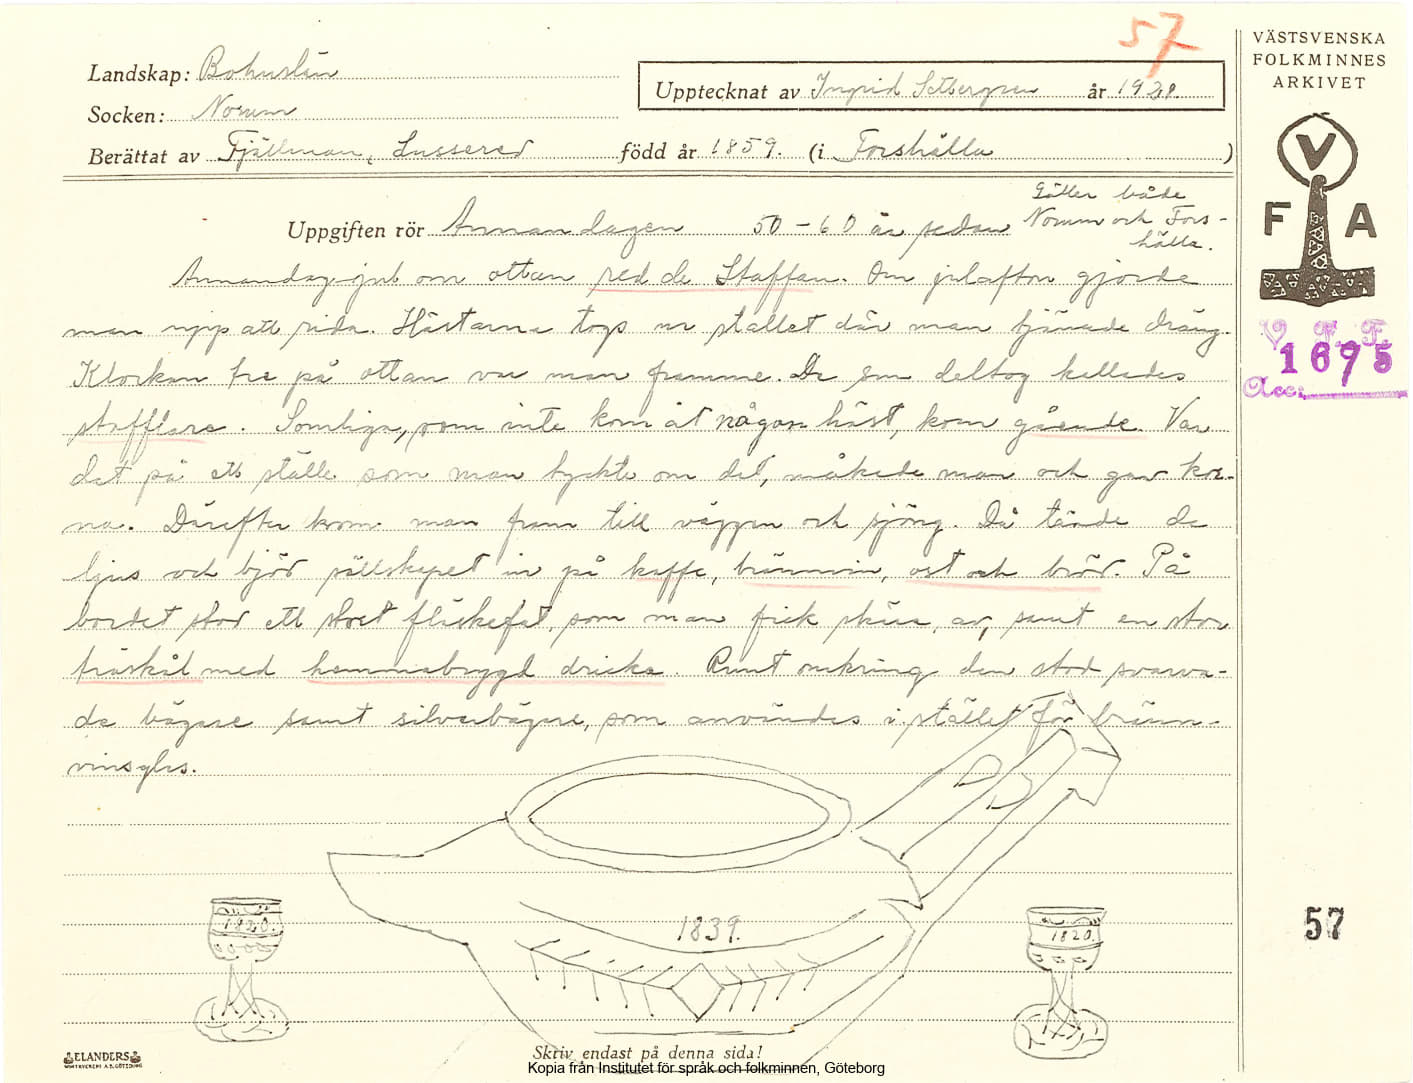 57
VÄSTSVENSKA
FOLKMINNES
ARKIVET
Landskap: Bohuslän
Upptecknat av Ingrid år 1928.
Socken: Norum
Berättat av Fjällman, Lussered född år 1859. (i Forshälla )
Gäller både
Uppgiften rör Annandagen 50-60 år sedan Norum och Fors-
hälla.
V
F A
Annandag jul om ottan red de Staffan. Om julafton gjorde
man upp att rida. Hästarna togs ur stallet där man tjänade dräng.
Klockan tre på ottan var man framme. De som deltog kallades
stafflare. Somliga, som inte kom åt någon häst, kom gående. Var
det på ett ställe som man tyckte om det, måkade man och gav kor-
na. Därefter kom man fram till väggen och sjöng. Då tände de
ljus och bjöd sällskapet in på kaffe, brännvin, ost och bröd. På
bordet stod ett stort fläskefat, som man fick skära av, samt en stor
träskål med hemmabrygd dricka. Runt omkring den stod svarva-
de bägare samt silverbägare, som användes i stället för bränn-
vinsglas.
V. F. F.
1695
Acc:
1820.
1839.
1820.
57
ELANDERS
Skriv endast på denna sida!
Kopia från Institutet för språk och folkminnen, Göteborg